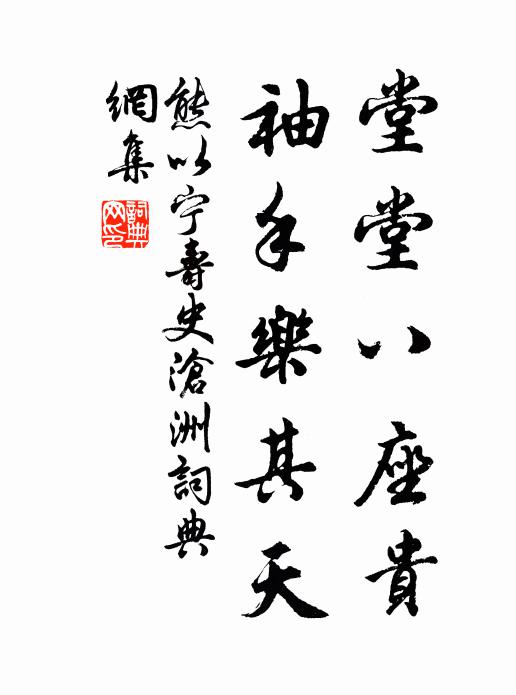 堂堂八座貴
袖手樂其天
熊以宁壽史滄洲詞典
網集
詞典網印